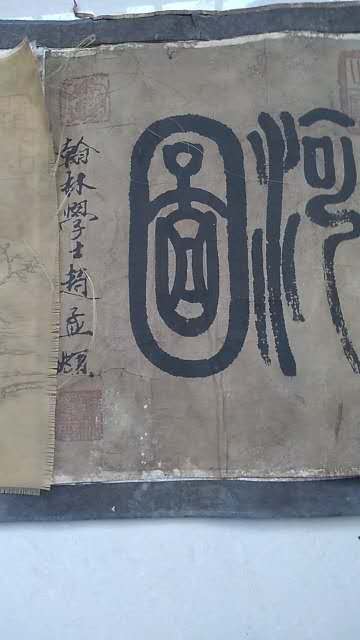 河圖
翰林學士趙孟頫